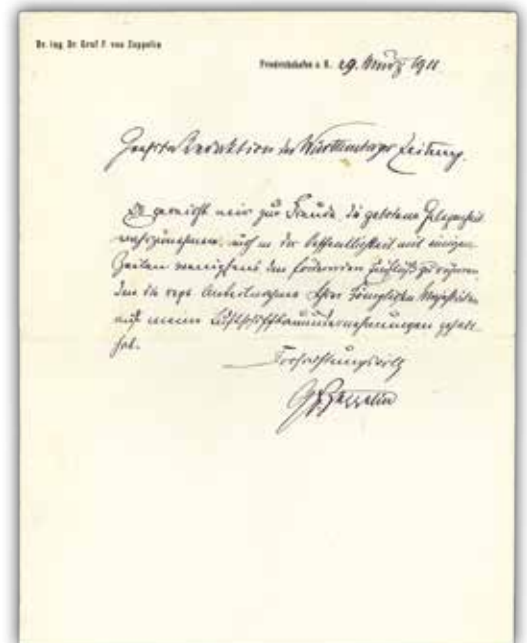 Dr. Ing. Dr. Graf F. von Zeppelin
Friedrichshafen a. B. 29. März 1911.
Geehrte Redaktion der Württemberger Zeitung.
Es gereicht mir zur Freude, die gebotene Gelegenheit
wahrzunehmen, auch in der Oeffentlichkeit mit einigen
Zeilen wenigstens den fördernden Einfluß zu rühmen,
den die rege Anteilnahme Ihrer Königlichen Majestäten
auf meine Luftschiffbauunternehmungen gehabt
hat.
Hochachtungsvoll
Zeppelin